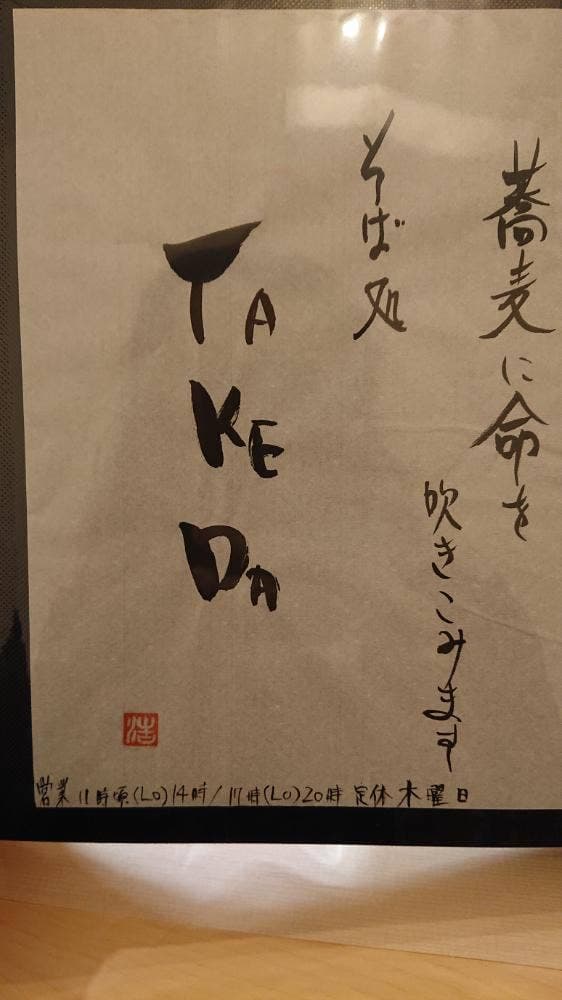 蕎麦に命を
吹きこみます
そば処
TA
KE
DA
浩
営業 11時頃(LO)14時/17時(LO)20時 定休 木曜日